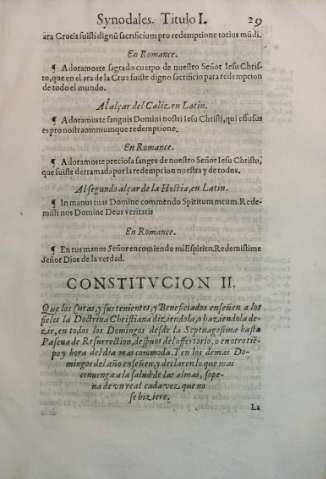 Synodales. Titulo I. 29
ara Crucis fuisti dignũ sacrificium pro redemptione totius mũdi.
En Romance.
¶ Adoramoste sagrado cuerpo de nuestro Señor Iesu Chris-
to, que en el ara de la Crus fuiste digno sacrificio para redempcion
de todo el mundo.
Al alçar del Caliz, en Latin.
¶ Adoramus te sanguis Domini nostri Iesu Christi, qui effusus
es pro nostra omniumque redemptione.
En Romance.
¶ Adoramoste preciosa sangre de nuestro Señor Iesu Christo,
que fuiste derramada por la redempcion nuestra y de todos.
Al segundo alçar de la Hostia, en Latin.
¶ In manus tuas Domine commendo Spiritum meum. Rede-
misti nos Domine Deus veritatis
En Romance.
¶ En tus manos Señor encomiendo mi Espiritu. Redemistime
Señor Dios de la verdad.
CONSTITVCION II.
Que los Curas, y sus tenientes, y Beneficiados enseñen a los
fieles la Doctrina Christiana diziendola, o haziendola de-
zir, en todos los Domingos desde la Septuagesima hasta
Pascua de Resurrection, despues del offertorio, o en otro tiẽ-
po y hora del dia mas commoda. Y en los demas Do-
mingos del año enseñen, y declaren lo que mas
conuenga a la salud de las almas, so pe-
na de vn real cada vez que no
se hiziere.
La